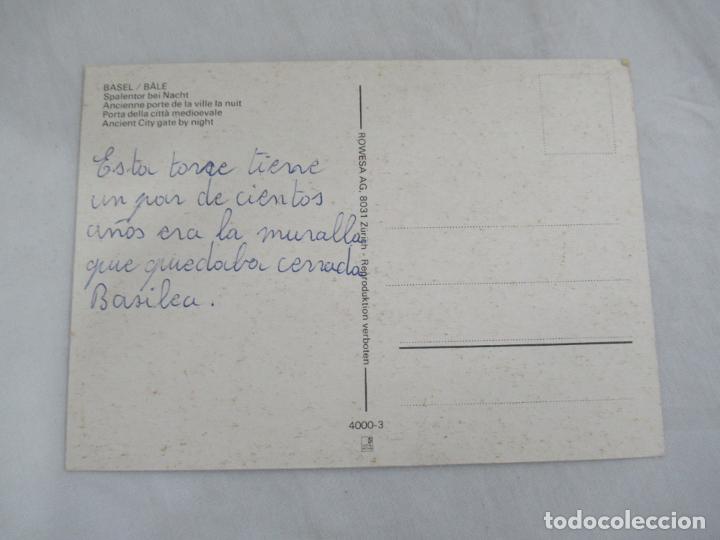 BASEL / BÂLE
Spalentor bei Nacht
Ancienne porte de la ville la nuit
Porta della città medioevale
Ancient City gate by night
Esta torre tiene
un par de cientos
años era la muralla
que quedaba cerrada
Basilea.
ROWESA AG, 8031 Zürich - Reproduktion verboten
4000-3
todocoleccion